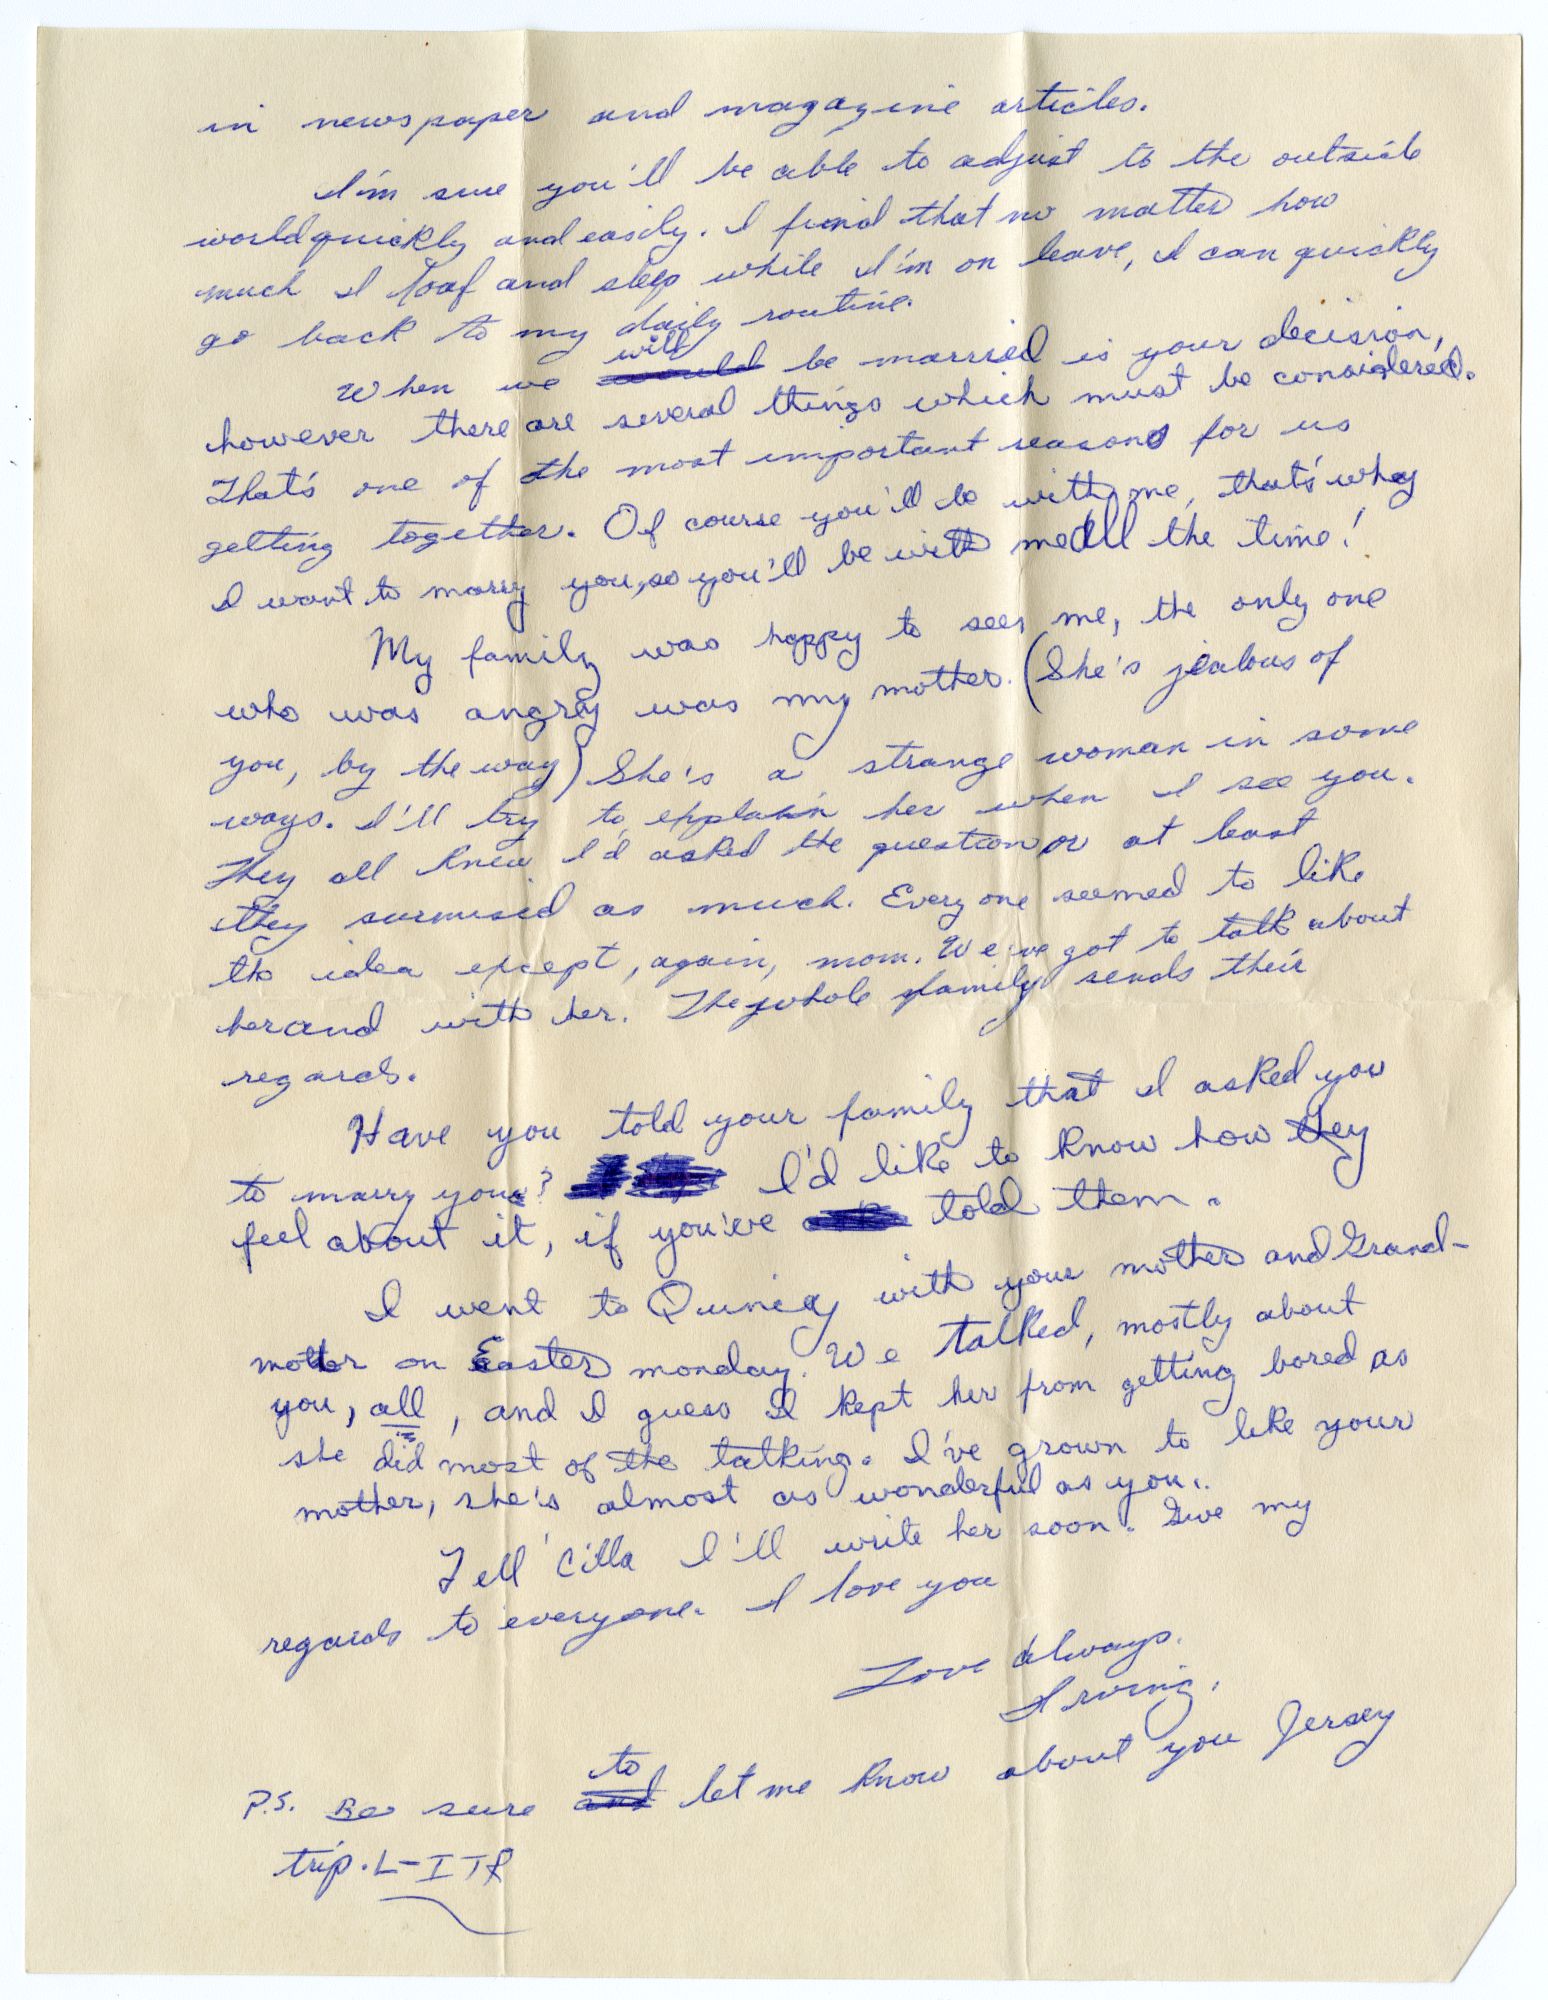 in newspaper and magazine articles.
I'm sure you'll be able to adjust to the outside
world quickly and easily. I find that no matter how
much I loaf and sleep while I'm on leave, I can quickly
go back to my daily routine.
When we will be married is your decision,
however there are several things which must be considered.
That's one of the most important reasons for us
getting together. Of course you'll be with me, that's why
I want to marry you, so you'll be with me all the time!
My family was happy to see me, the only one
who was angry was my mother. (She's jealous of
you, by the way) She's a strange woman in some
ways. I'll try to explain her when I see you.
They all knew I'd asked the question or at least
they surmised as much. Everyone seemed to like
the idea except, again, mom. We've got to talk about
her and with her. The whole family sends their
regards.
Have you told your family that I asked you
to marry you? I'd like to know how they
feel about it, if you've told them.
I went to Quincy with your mother and Grand-
mother on Easter monday. We talked, mostly about
you, all, and I guess I kept her from getting bored as
she did most of the talking. I've grown to like your
mother, she's almost as wonderful as you.
Tell 'Cilla I'll write her soon. Give my
regards to everyone. I love you
Love always.
Irving.
P.S. Be sure to let me know about you Jersey
trip. L-ITR